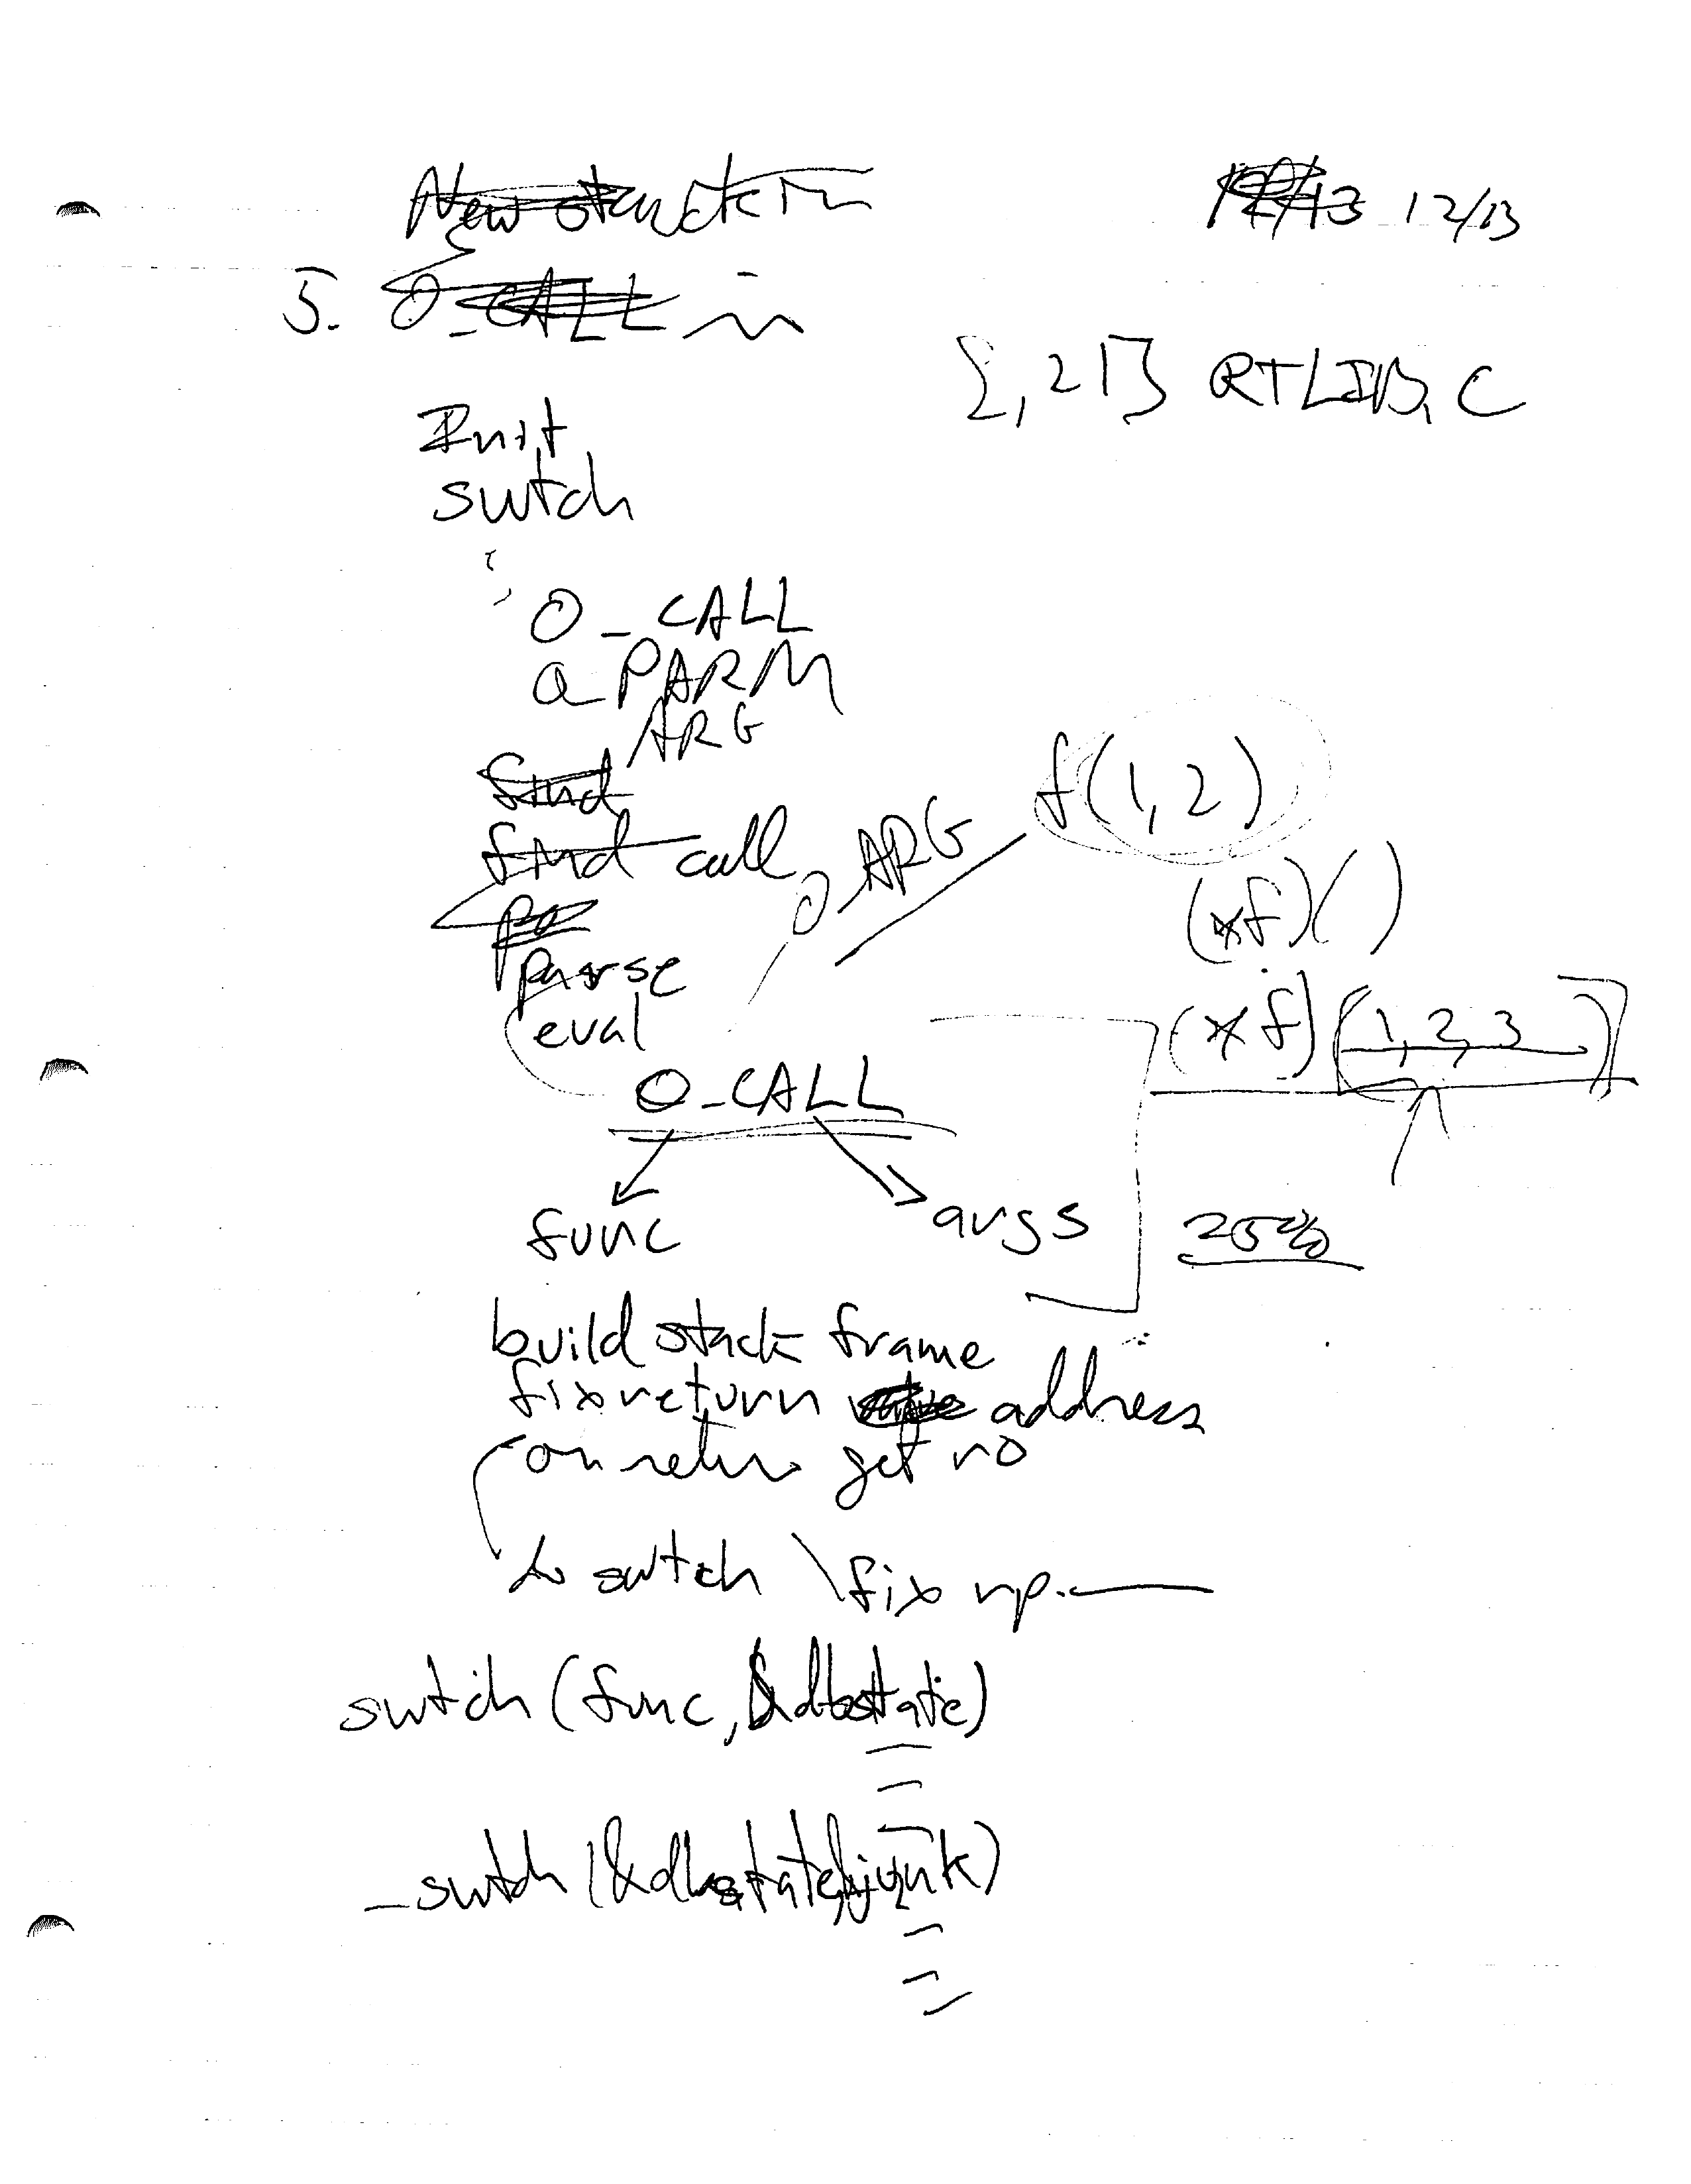 New struct in
12/13 12/13
5. O_CALL in
{1,2]} RTLIB.C
Init
swtch
O_CALL
O_PARM
ARG
find
find call
O_ARG
f(1,2)
(*f)()
parse
eval
(*f)(1,2,3)
O_CALL
func
args
25%
build stack frame
fix return address
on return get r0
to swtch \ fix up.
swtch(func, &dbstate)
_swtch(&dbstate, junk)